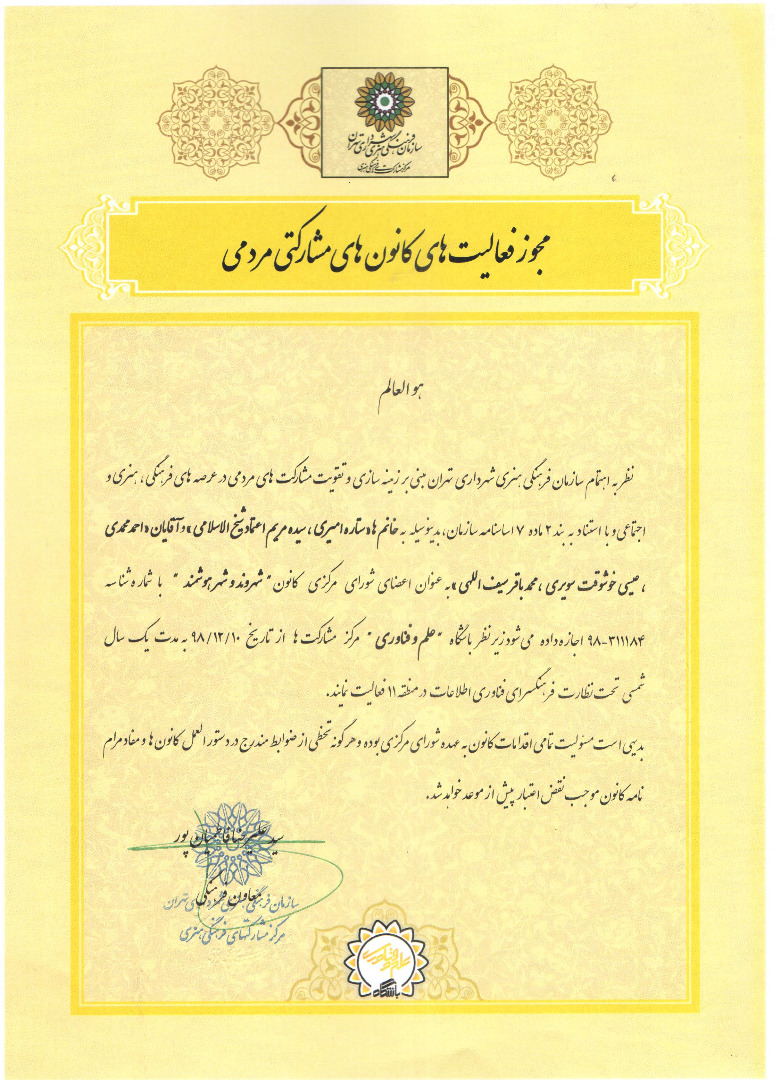 سازمان فرهنگی هنری شهرداری تهران
مرکز مشارکت های فرهنگی هنری
مجوز فعالیت های کانون های مشارکتی مردمی
هو العالم
نظر به اهتمام سازمان فرهنگی هنری شهرداری تهران مبنی بر زمینه سازی و تقویت مشارکت های مردمی در عرصه های فرهنگی، هنری و
اجتماعی و با استناد به بند ۲ ماده ۷ اساسنامه سازمان، بدینوسیله به خانم ها «ستاره امیری، سیده مریم اعتماد شیخ الاسلامی» و آقایان «احمد محمدی
، عیسی خوشوقت سویری، محمد باقر سیف اللهی» به عنوان اعضای شورای مرکزی کانون "شهروند و شهر هوشمند" با شماره شناسه
۹۸-۳۱۱۱۸۴ اجازه داده می شود زیر نظر باشگاه "علم و فناوری" مرکز مشارکت ها از تاریخ ۹۸/۱۲/۱۰ به مدت یک سال
شمسی تحت نظارت فرهنگسرای فناوری اطلاعات در منطقه ۱۱ فعالیت نمایند.
بدیهی است مسئولیت تمامی اقدامات کانون به عهده شورای مرکزی بوده و هر گونه تخطی از ضوابط مندرج در دستور العمل کانون ها و مفاد مرام
نامه کانون موجب نقض اعتبار پیش از موعد خواهد شد.
سید علیرضا فاطمیان پور
معاون فرهنگی
سازمان فرهنگی هنری شهرداری تهران
مرکز مشارکتهای فرهنگی هنری
علم و فناوری
باشگاه